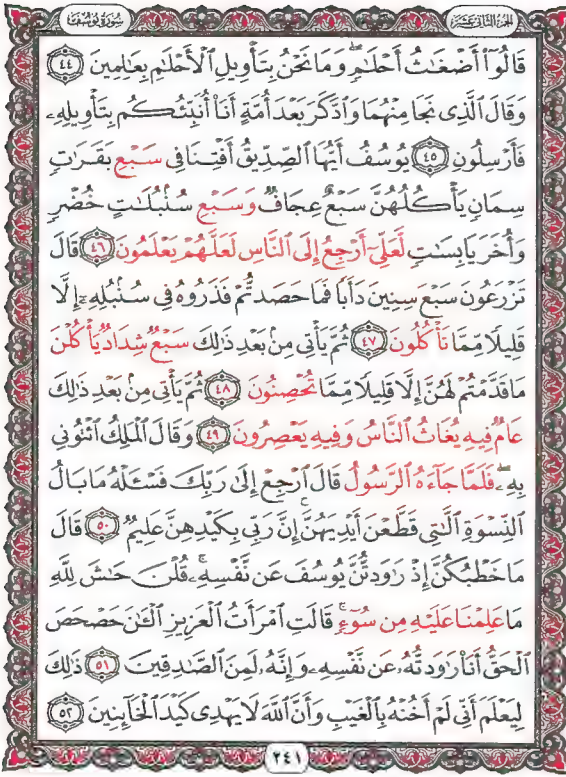 الجزء الثاني عشر
سورة يوسف
قَالُوٓاْ أَضْغَٰثُ أَحْلَٰمٖۖ وَمَا نَحْنُ بِتَأْوِيلِ ٱلْأَحْلَٰمِ بِعَٰلِمِينَ ٤٤
وَقَالَ ٱلَّذِى نَجَا مِنْهُمَا وَٱدَّكَرَ بَعْدَ أُمَّةٍ أَنَا۠ أُنَبِّئُكُم بِتَأْوِيلِهِۦ
فَأَرْسِلُونِ ٤٥ يُوسُفُ أَيُّهَا ٱلصِّدِّيقُ أَفْتِنَا فِى سَبْعِ بَقَرَٰتٍ
سِمَانٍ يَأْكُلُهُنَّ سَبْعٌ عِجَافٌ وَسَبْعِ سُنۢبُلَٰتٍ خُضْرٍ
وَأُخَرَ يَابِسَٰتٍ لَّعَلِّىٓ أَرْجِعُ إِلَى ٱلنَّاسِ لَعَلَّهُمْ يَعْلَمُونَ ٤٦ قَالَ
تَزْرَعُونَ سَبْعَ سِنِينَ دَأَبًا فَمَا حَصَدتُّمْ فَذَرُوهُ فِى سُنۢبُلِهِۦٓ إِلَّا
قَلِيلًا مِّمَّا تَأْكُلُونَ ٤٧ ثُمَّ يَأْتِى مِنۢ بَعْدِ ذَٰلِكَ سَبْعٌ شِدَادٌ يَأْكُلْنَ
مَا قَدَّمْتُمْ لَهُنَّ إِلَّا قَلِيلًا مِّمَّا تُحْصِنُونَ ٤٨ ثُمَّ يَأْتِى مِنۢ بَعْدِ ذَٰلِكَ
عَامٌ فِيهِ يُغَاثُ ٱلنَّاسُ وَفِيهِ يَعْصِرُونَ ٤٩ وَقَالَ ٱلْمَلِكُ ٱئْتُونِى
بِهِۦۖ فَلَمَّا جَآءَهُ ٱلرَّسُولُ قَالَ ٱرْجِعْ إِلَىٰ رَبِّكَ فَسْـَٔلْهُ مَا بَالُ
ٱلنِّسْوَةِ ٱلَّٰتِى قَطَّعْنَ أَيْدِيَهُنَّۚ إِنَّ رَبِّى بِكَيْدِهِنَّ عَلِيمٌ ٥٠ قَالَ
مَا خَطْبُكُنَّ إِذْ رَٰوَدتُّنَّ يُوسُفَ عَن نَّفْسِهِۦۚ قُلْنَ حَٰشَ لِلَّهِ
مَا عَلِمْنَا عَلَيْهِ مِن سُوٓءٍۚ قَالَتِ ٱمْرَأَتُ ٱلْعَزِيزِ ٱلْـَٰٔنَ حَصْحَصَ
ٱلْحَقُّ أَنَا۠ رَٰوَدتُّهُۥ عَن نَّفْسِهِۦ وَإِنَّهُۥ لَمِنَ ٱلصَّٰدِقِينَ ٥١ ذَٰلِكَ
لِيَعْلَمَ أَنِّى لَمْ أَخُنْهُ بِٱلْغَيْبِ وَأَنَّ ٱللَّهَ لَا يَهْدِى كَيْدَ ٱلْخَآئِنِينَ ٥٢
٢٤١